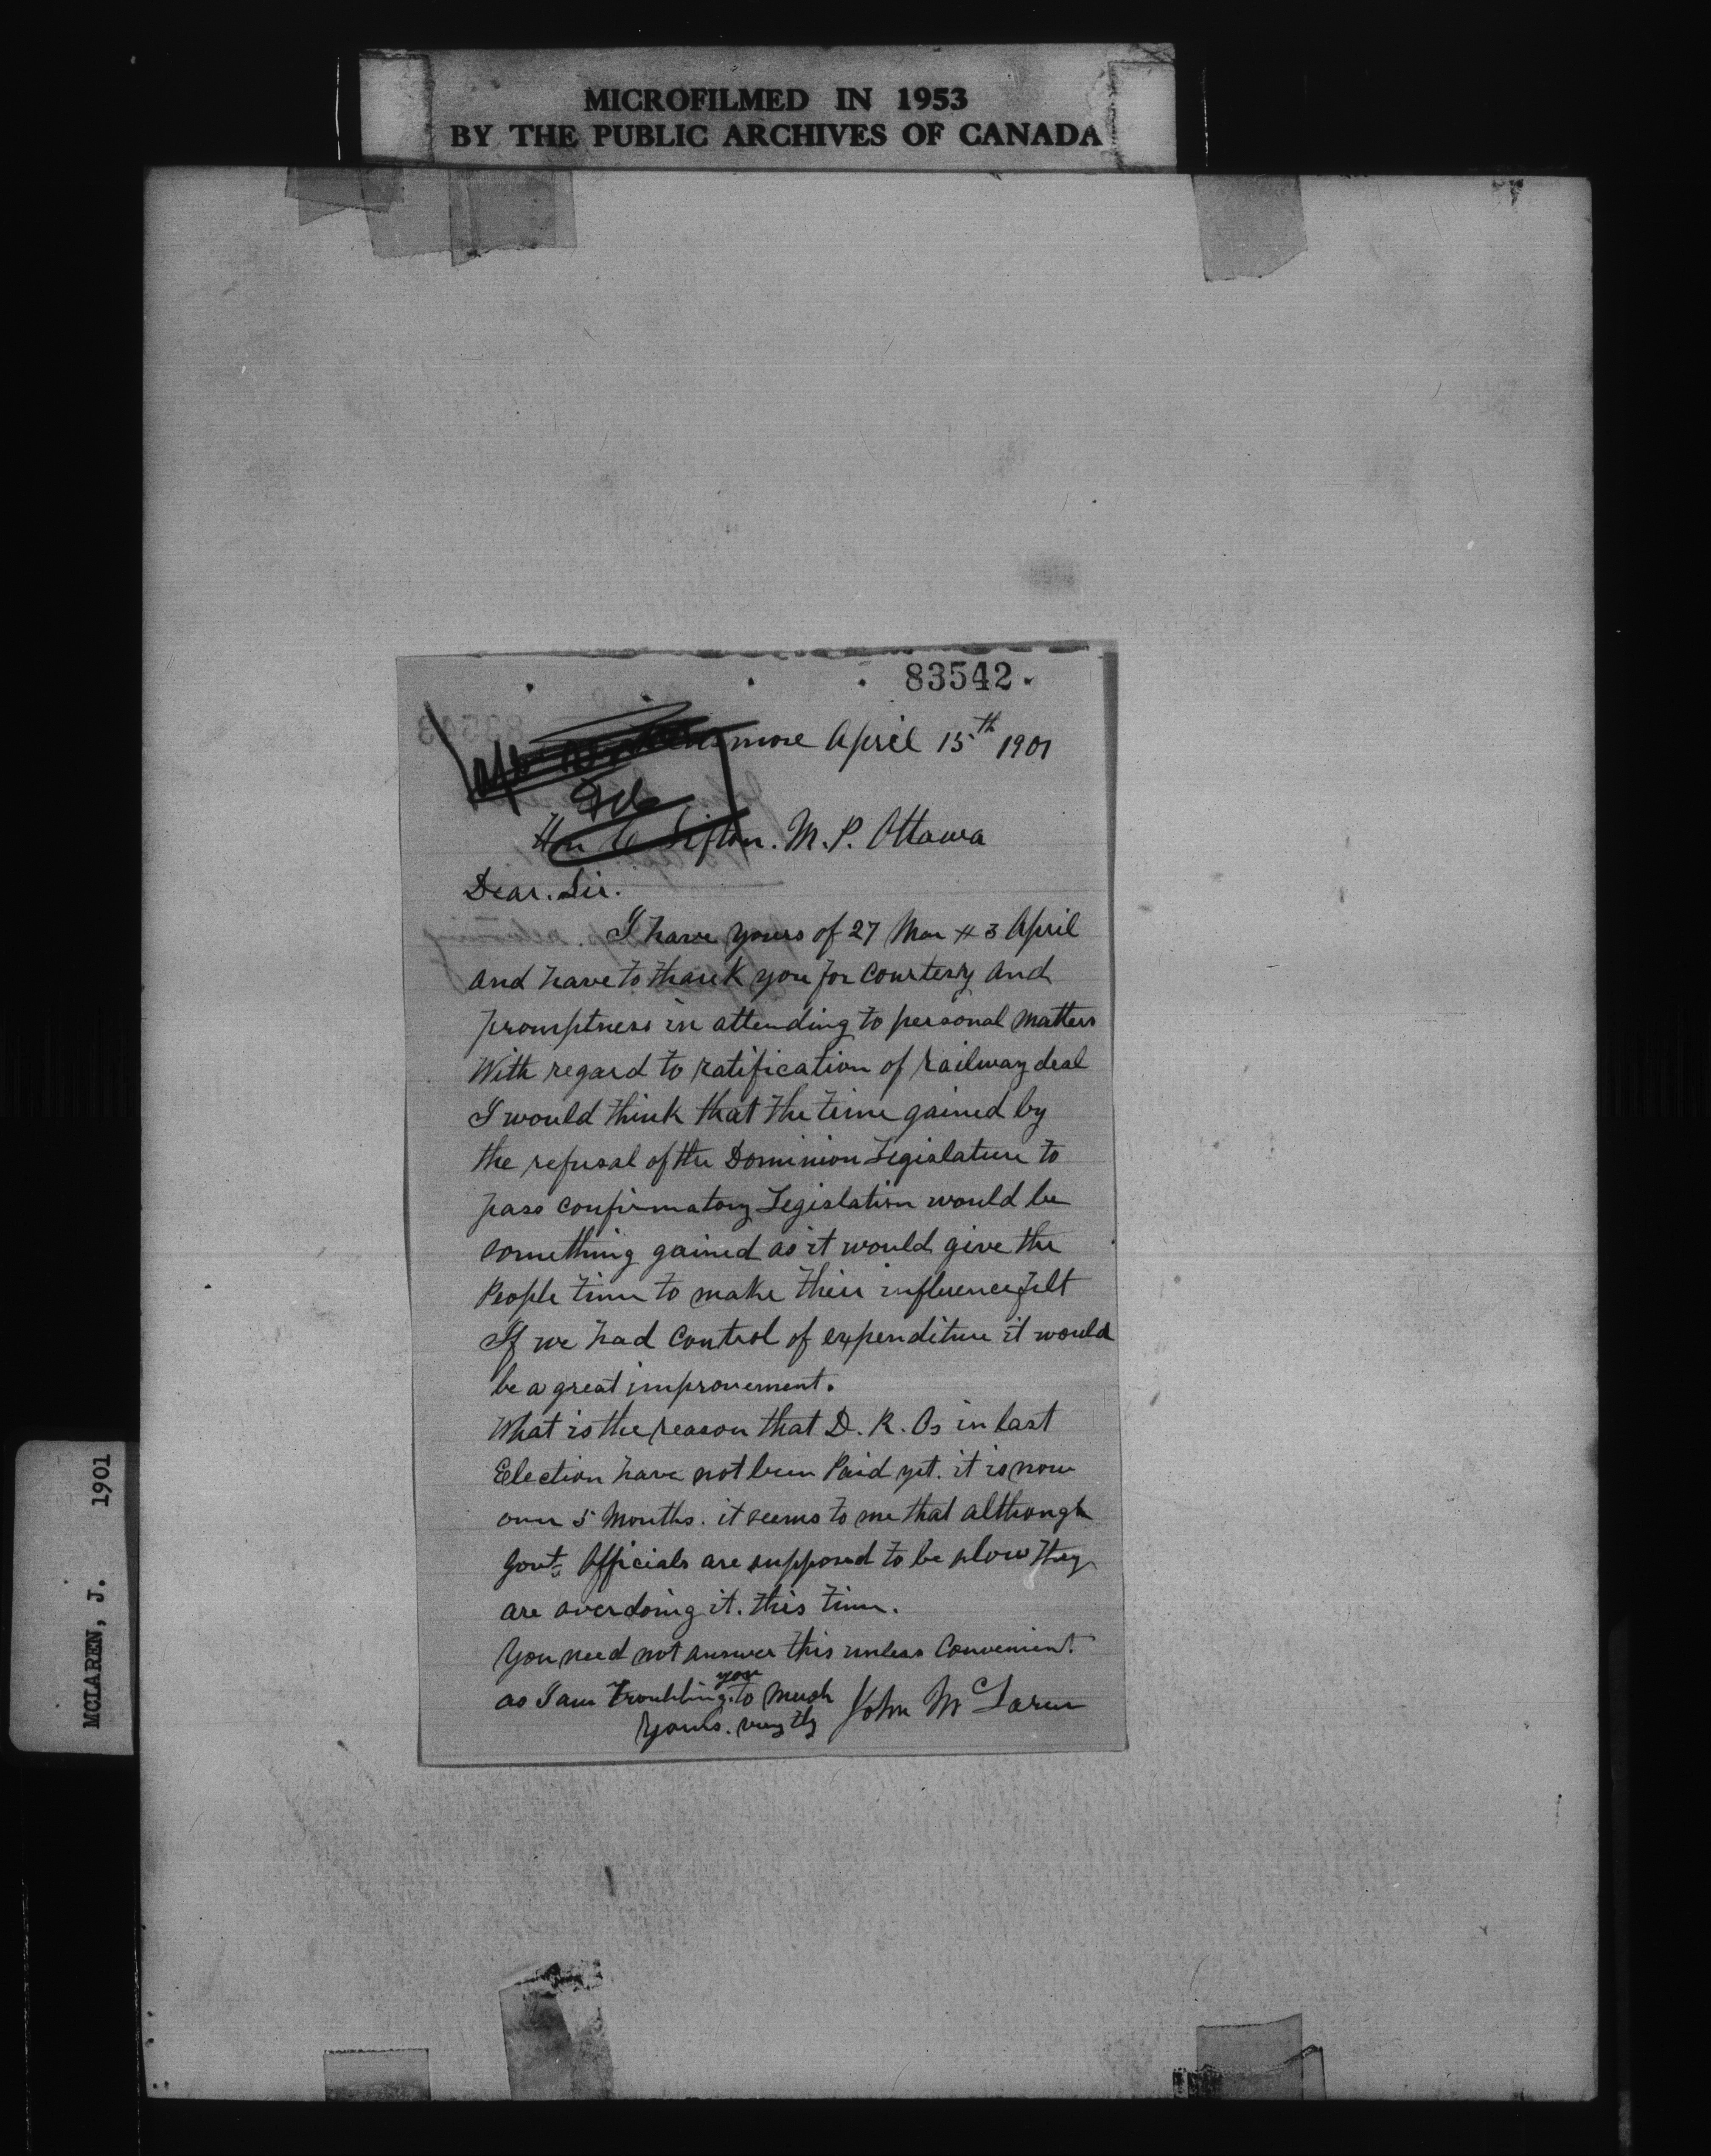 MICROFILMED IN 1953
BY THE PUBLIC ARCHIVES OF CANADA
83542.
more April 15th 1901
File
Hon C Sifton. M. P. Ottawa
Dear. Sir.
I have yours of 27 Mar & 3 April
and have to thank you for Courtesy and
promptness in attending to personal Matters
With regard to ratification of railway deal
I would think that the time gained by
the refusal of the Dominion Legislature to
pass confirmatory Legislation would be
something gained as it would give the
People time to make their influence felt
If we had Control of expenditure it would
be a great improvement.
What is the reason that D. R. Os in last
Election have not been Paid yet. it is now
over 5 Months. it seems to me that although
Govt. Officials are supposed to be slow they
are overdoing it. this time.
You need not answer this unless Convenient.
as I am troubling you to Much
Yours. very tly John McLaren
MCLAREN, J. 1901